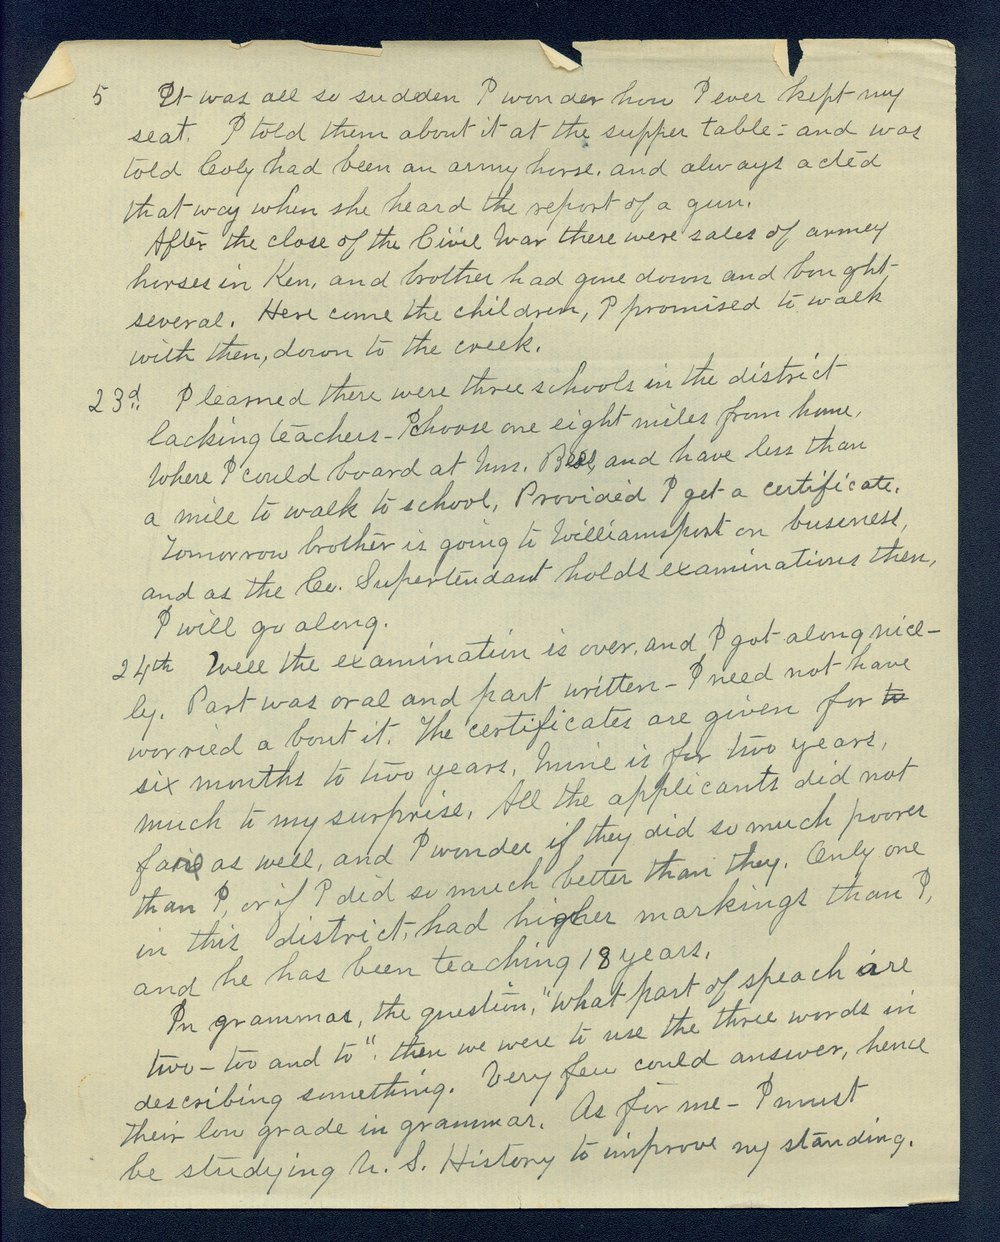 5 It was all so sudden I wonder how I ever kept my
seat. I told them about it at the supper table - and was
told Coly had been an army horse. and always acted
that way when she heard the report of a gun.
After the close of the Civil War there were sales of armey
horses in Ken, and brother had gone down and bought
several. Here come the children, I promised to walk
with then, down to the creek.
23d. I learned there were three schools in the district
lacking teachers - I choose one eight miles from home,
Where I could board at Mrs. and have less than
a mile to walk to school, Provided I get a certificate.
Tomorrow brother is going to Williamsport on buseness,
and as the Co. Supertendant holds examinations then,
I will go along.
24th Well the examination is over, and I got along nice-
ly. Part was oral and part written - I need not have
worried a bout it. The certificates are given for to
six months to two years, Mine is for two years,
much to my surprise. All the applicants did not
as well, and I wonder if they did so much poorer
than I, or if I did so much better than they. Only one
in this district, had higher markings than I,
and he has been teaching 18 years.
In grammar, the question, "what part of speach are
two - too and to". then we were to use the three words in
describing something. Very few could answer, hence
their low grade in grammar. As for me - I must
be studying U. S. History to improve my standing.